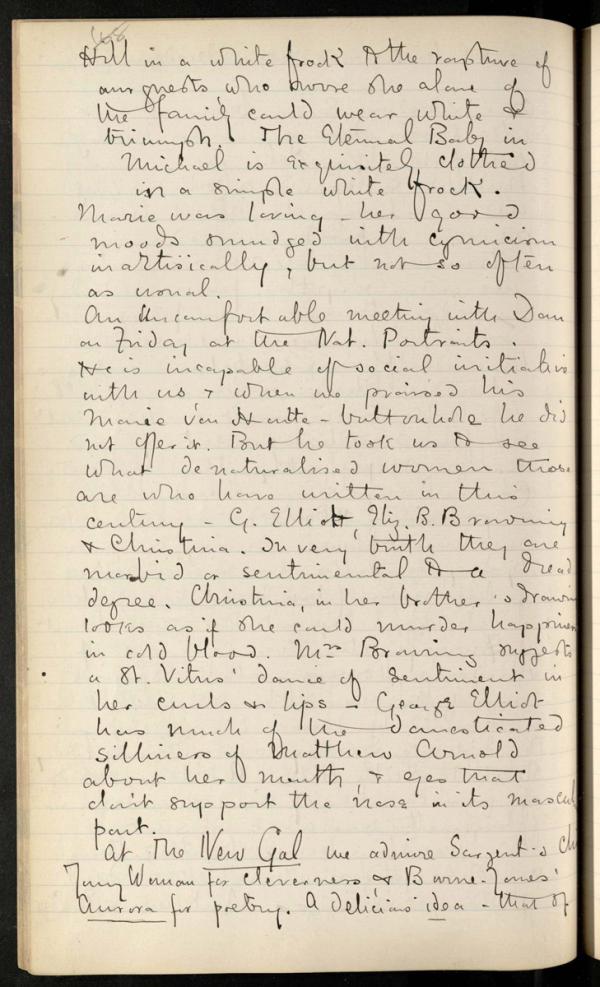 Hill in a white frock to the rapture of
our guests, who swore she alone of
the family could wear white &
triumph. The Eternal Baby in
Michael is exquisitely clothed
in a simple white frock.
Marie was loving - her good
moods smudged with cynicism
inartisically, but not so often
as usual.
An uncomfortable meeting with Dan
on Friday at the Nat. Portraits.
He is incapable of social initiative
with us & when we praised his
Marie Van Houtte - buttonhole he did
not offer it. But he took us to see
what denaturalised women those
are who have written in this
century - G. Elliott, Eliz. B. Browning
& Christina. In very truth they are
morbid or sentimental to a dread
degree. Christina, in her brother's drawing
looks as if she could murder happiness
in cold blood. Mrs Browning suggests
a St. Vitus' dance of sentiment in
her curls & lips - George Elliot
has much of the domesticated
silliness of Matthew Arnold
about her mouth, & eyes that
don't support the nose in its mascul
part.
At The New Gal we admire Sargent's
Young Woman for cleverness & Burne-Jones'
Aurora for poetry. A delicious idea - that of